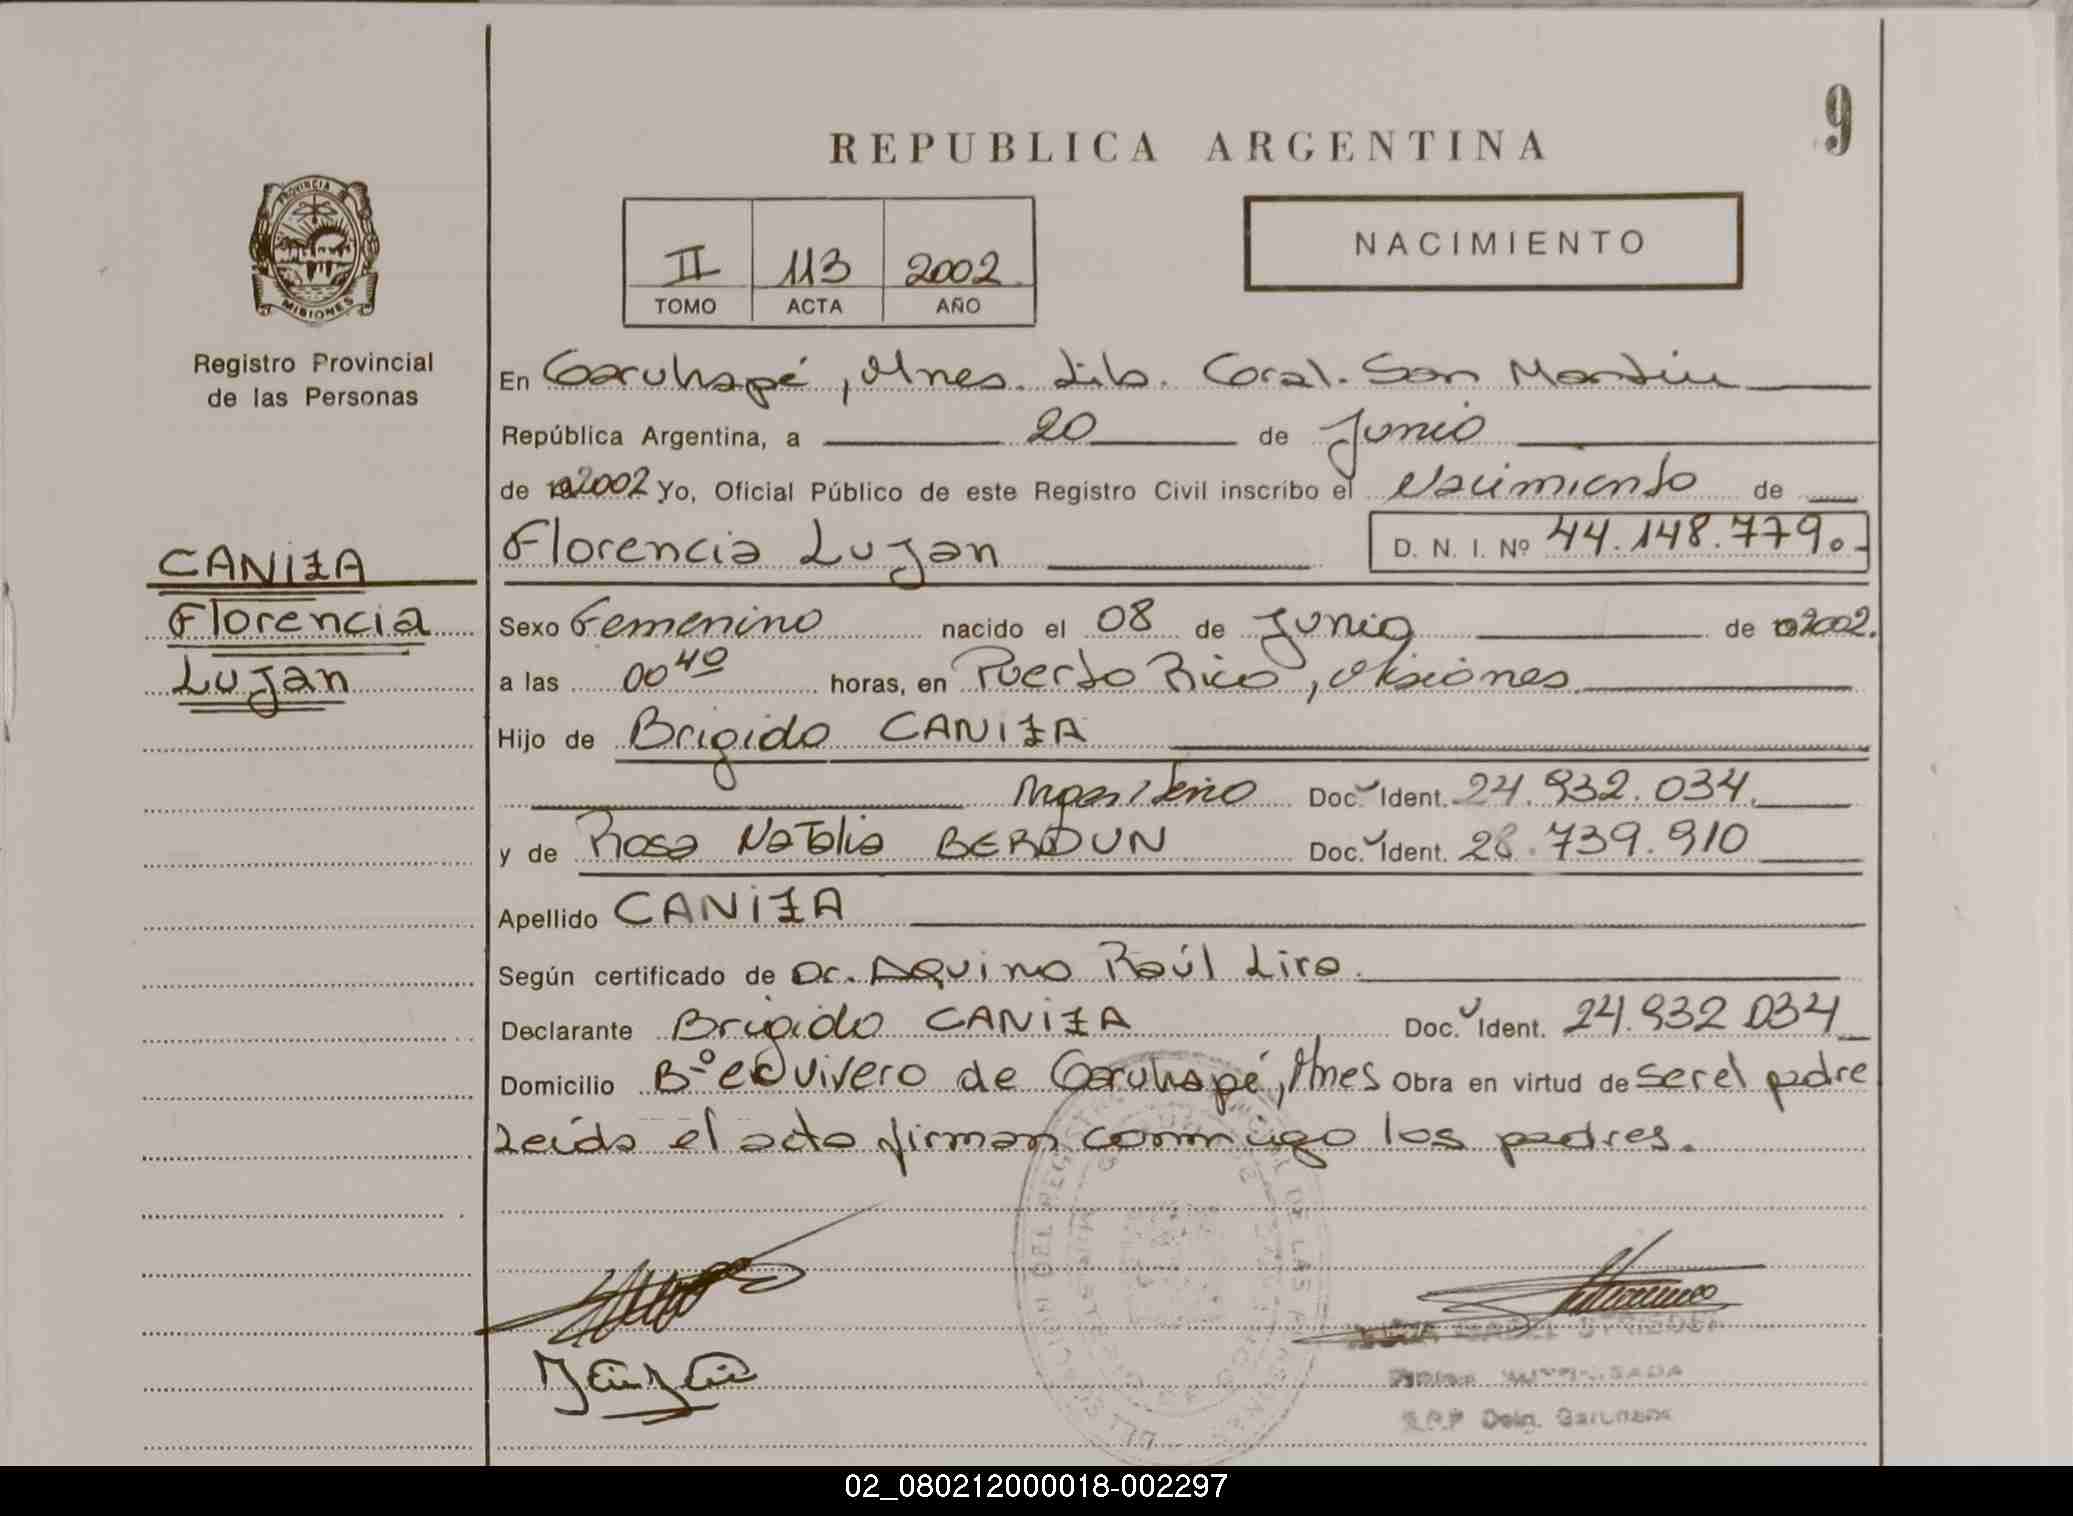 9
REPUBLICA ARGENTINA
PROVINCIA
MISIONES
Registro Provincial
de las Personas
II 113 2002
TOMO ACTA AÑO
NACIMIENTO
En Garuhapé, Mnes. Lib. Gral. San Martin
República Argentina, a 20 de Junio
de 2002 Yo, Oficial Público de este Registro Civil inscribo el Nacimiento de
Florencia Lujan D. N. I. Nº 44.148.779.-
CANIZA
Florencia
Lujan
Sexo Femenino nacido el 08 de Junio de 2002.
a las 00 40 horas, en Puerto Rico, Misiones
Hijo de Brigido CANIZA
Doc. Ident. 24.932.034.
y de Rosa Natalia BERDUN Doc. Ident. 28.739.910
Apellido CANIZA
Según certificado de Dr. Aquino Raúl Lira.
Declarante Brigido CANIZA Doc. Ident. 24.932.034
Domicilio Bº el vivero de Garuhapé, Mnes Obra en virtud de ser el padre
Leída el acta firman conmigo los padres.
02_080212000018-002297